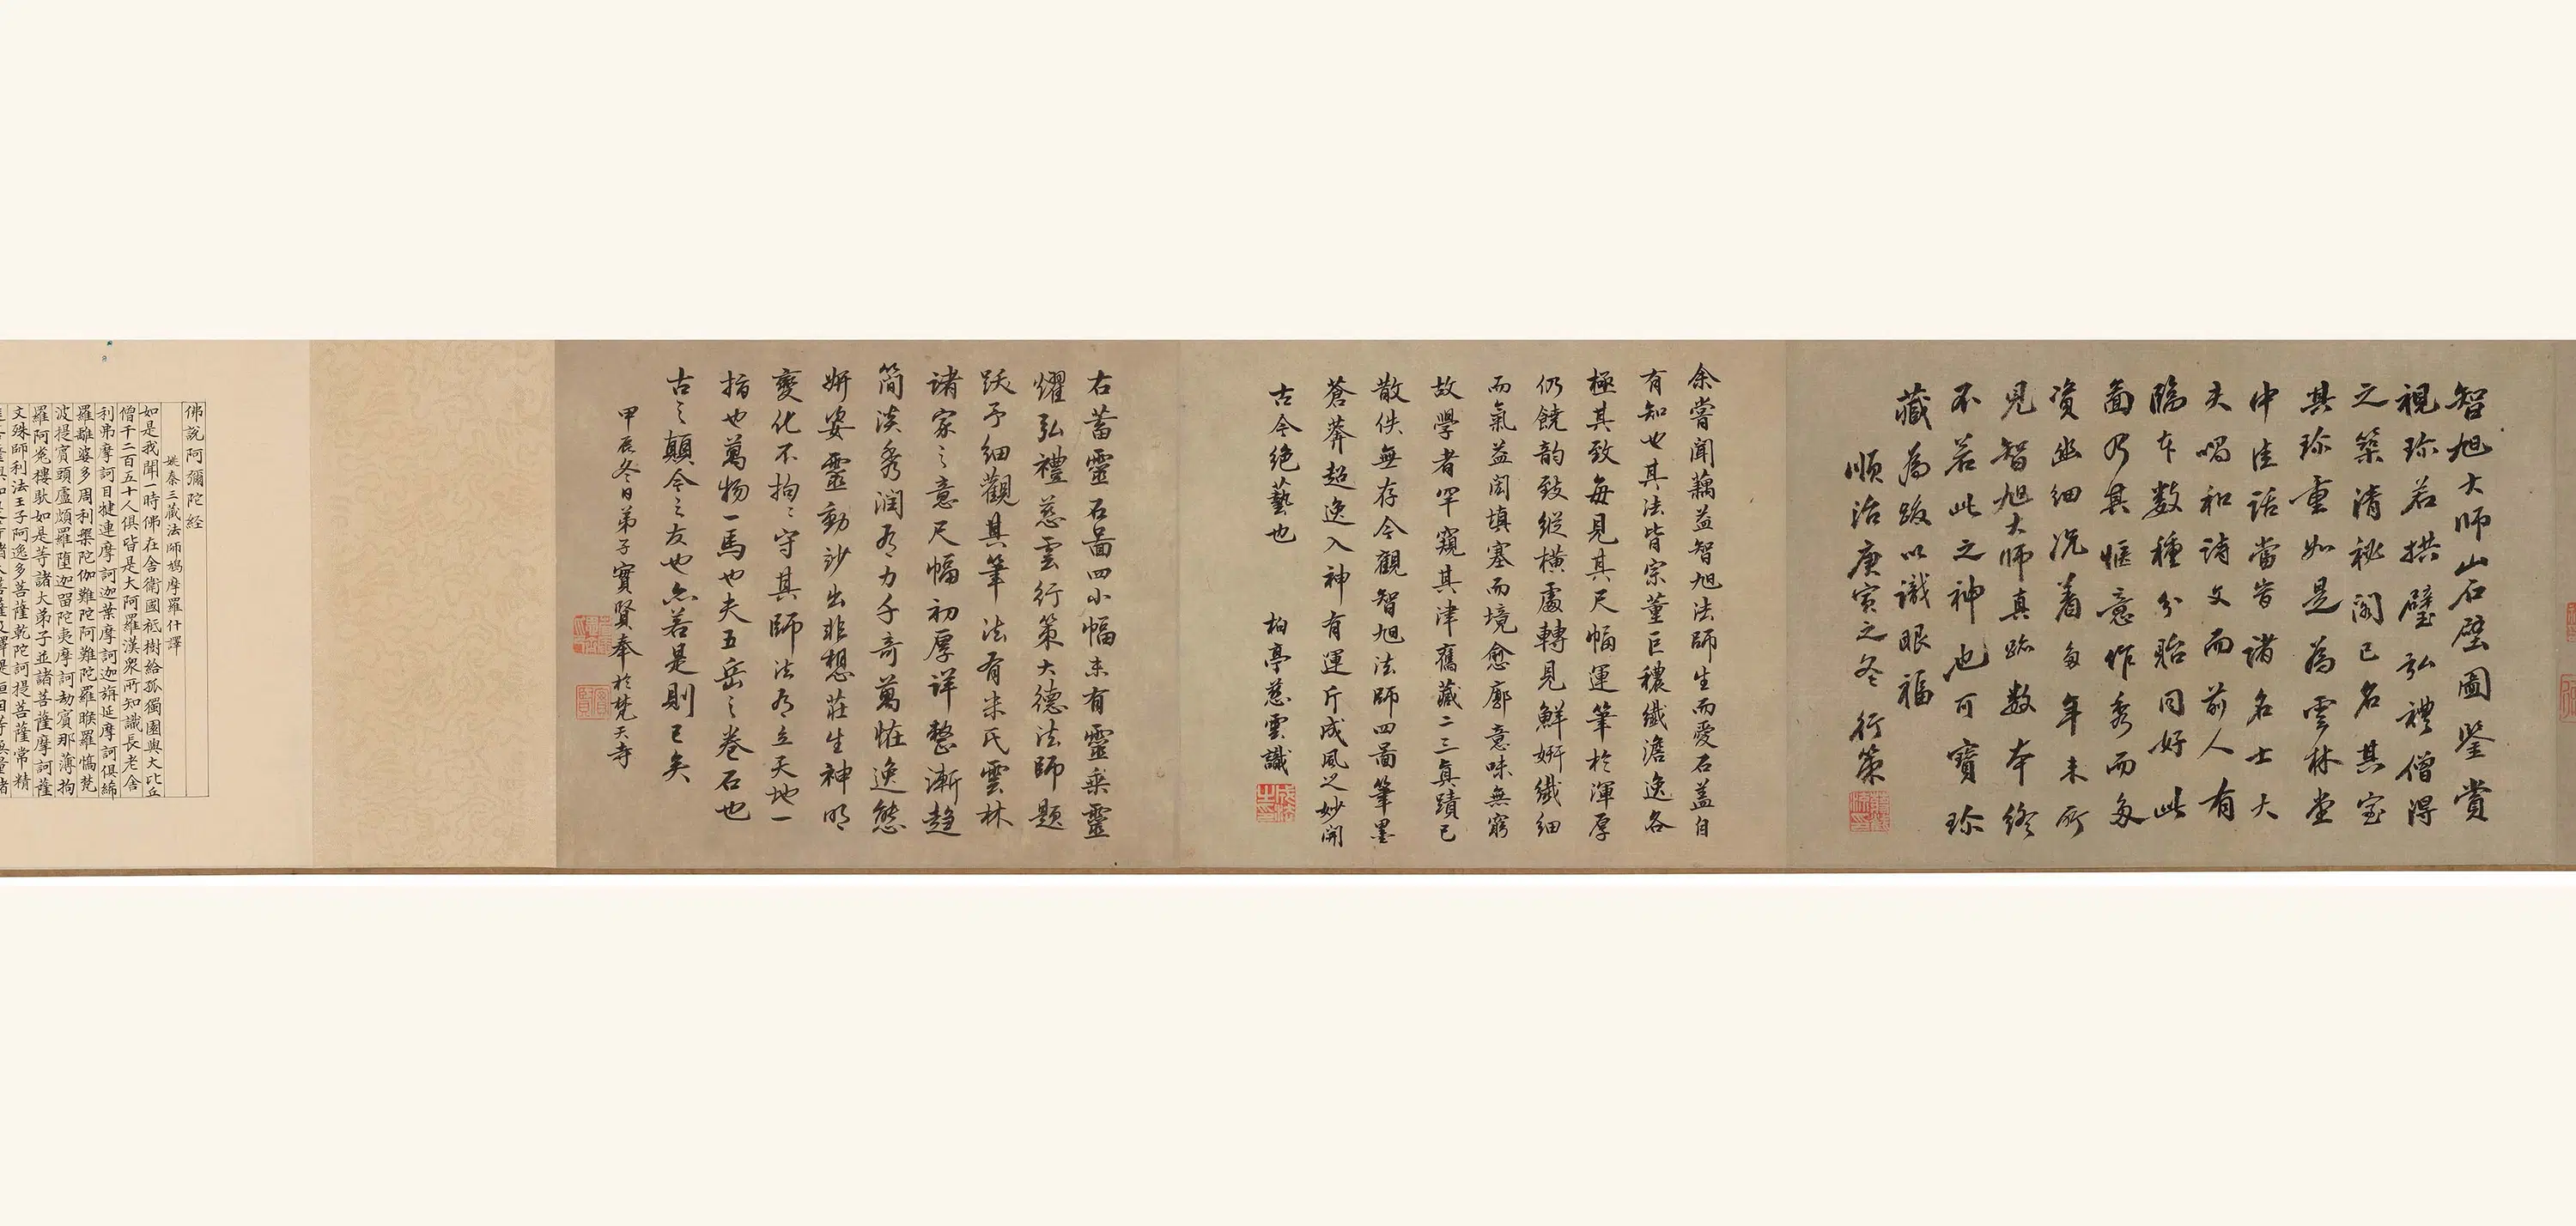 智旭大師山石壁圖鑒賞
視珎若拱璧弘禮僧得
之築清祕閣已名其室
其珎重如是為雲林堂
中佳話當皆諸名士大
夫唱和詩文而前人有
臨本數種分貽同好此
圖乃其愜意作秀而多
資幽細況着多年未所
見智旭大師真跡數本終
不若此之神也可寶珎
藏為跋以識眼福
順治庚寅之冬 行策
余嘗聞蕅益智旭法師生而愛石蓋自
有知也其法皆宗董巨穠纖澹逸各
極其致每見其尺幅運筆於渾厚
仍饒韵致縱橫處轉見鮮妍纖細
而氣益閎填塞而境愈廓意味無窮
故學者罕窺其津舊藏二三真蹟已
散佚無存今觀智旭法師四圖筆墨
蒼莽超逸入神有運斤成風之妙開
古今絕藝也
柏亭慈雲識
右蓄靈石圖四小幅末有靈乘靈
燿弘禮慈雲行策大德法師題
跋予細觀其筆法有米氏雲林
諸家之意尺幅初厚詳整漸趋
簡淡秀润為力千奇萬恠逸態
妍姿靈動沙出非想莊生神明
變化不拘〻守其師法為立天地一
指也萬物一馬也夫五岳之卷石也
古之顛今之友也亦若是則已矣
甲辰冬日弟子實賢奉於梵天寺
佛說阿彌陀經
姚秦三藏法師鳩摩羅什譯
如是我聞一時佛在舍衛國祇樹給孤獨園與大比丘
僧千二百五十人俱皆是大阿羅漢眾所知識長老舍
利弗摩訶目揵連摩訶迦葉摩訶迦旃延摩訶俱絺
羅離婆多周利槃陀伽難陀阿難陀羅睺羅憍梵
波提賓頭盧頗羅堕迦留陀夷摩訶劫賓那薄拘
羅阿㝹樓馱如是等諸大弟子並諸菩薩摩訶薩
文殊師利法王子阿逸多菩薩乾陀訶提菩薩常精